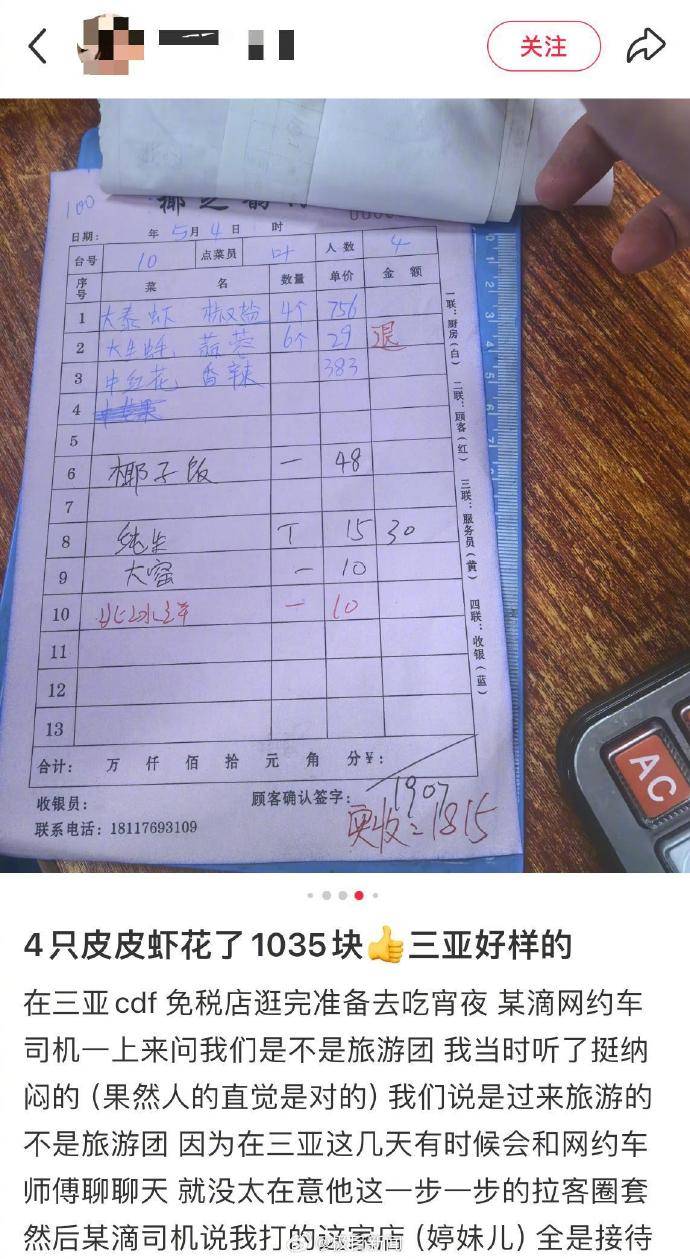 关注
100
椰之韵
日期: 年 5月 4日 时
台号 10 点菜员 叶 人数 4
序号 菜名 数量 单价 金额
1 大泰虾 椒盐 4个 756
2 大生蚝 蒜蓉 6个 29 退
3 中红花 香辣 383
4
5
6 椰子饭 一 48
7
8 纯生 T 15 30
9 大窑 一 10
10 北冰洋 一 10
11
12
13
一联:厨房(白) 二联:顾客(红) 三联:服务员(黄) 四联:收银(蓝)
合计: 万 仟 佰 拾 元 角 分¥:
收银员: 顾客确认签字:
1907
联系电话: 18117693109
实收:1815
AC
4只皮皮虾花了1035块👍三亚好样的
在三亚cdf 免税店逛完准备去吃宵夜 某滴网约车
司机一上来问我们是不是旅游团 我当时听了挺纳
闷的(果然人的直觉是对的)我们说是过来旅游的
不是旅游团 因为在三亚这几天有时候会和网约车
师傅聊聊天 就没太在意他这一步一步的拉客圈套
然后某滴司机说我打的这家店(婷妹儿)全是接待
@极目新闻